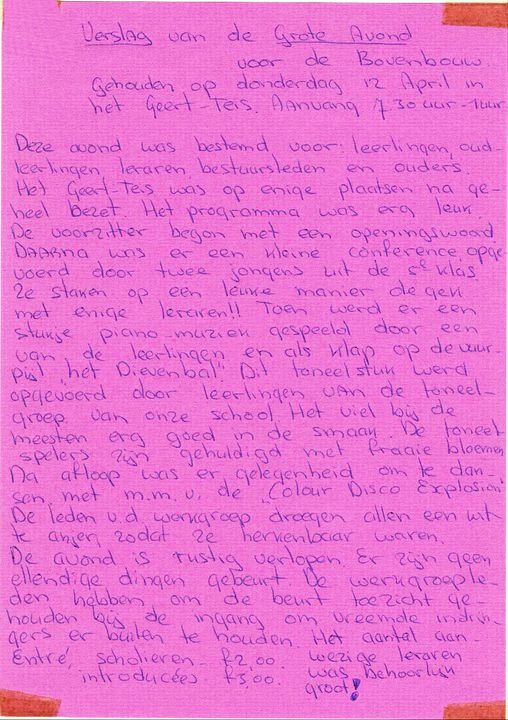 Verslag van de Grote Avond
voor de Bovenbouw.
Gehouden op donderdag 12 April in
het Geert-Teis. Aanvang 7.30 uur - 1 uur.
Deze avond was bestemd voor: leerlingen, oud-
leerlingen, leraren, bestuursleden en ouders.
Het Geert-Teis was op enige plaatsen na ge-
heel bezet. Het programma was erg leuk.
De voorzitter begon met een openingswoord
DAARna was er een kleine conference, opge-
voerd door twee jongens uit de 5e klas
Ze staken op een leuke manier de gek
met enige leraren!! Toen werd er een
stukje piano-muziek gespeeld door een
van de leerlingen en als klap op de vuur-
pijl "het Dievenbal". Dit toneelstuk werd
opgevoerd door leerlingen van de toneel-
groep van onze school. Het viel bij de
meesten erg goed in de smaak. De toneel
spelers zijn gehuldigd met fraaie bloemen
Na afloop was er gelegenheid om te dan-
sen, met m.m.v. de "Colour Disco Explosion"
De leden v.d. werkgroep droegen allen een wit-
te anjer zodat ze herkenbaar waren.
De avond is rustig verlopen. Er zijn geen
ellendige dingen gebeurt. De werkgroeple-
den hebben om de beurt toezicht ge-
houden bij de ingang om vreemde indrin-
gers er buiten te houden. Het aantal aan-
Entré scholieren - f2,00. wezige leraren
introducées f3,00. was behoorlijk
groot!